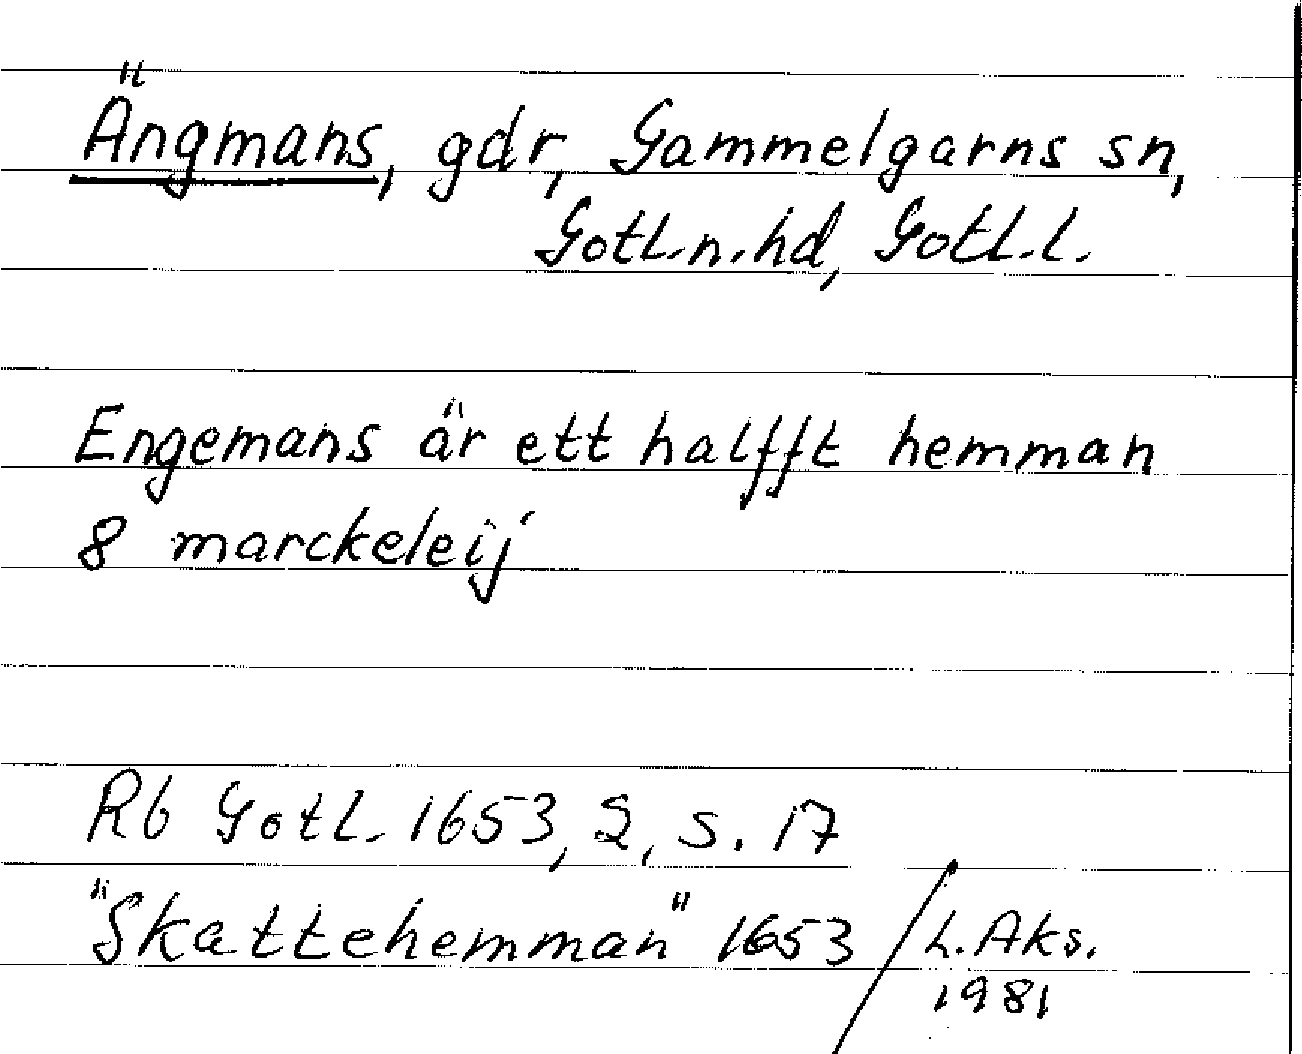 Ängmans, gdr, Gammelgarns sn,
Gotl.n.hd, Gotl.l.
Engemans är ett halfft hemman
8 marckeleij
Rb Gotl. 1653, 2, s. 17
"Skattehemman" 1653 / L. Aks.
1981